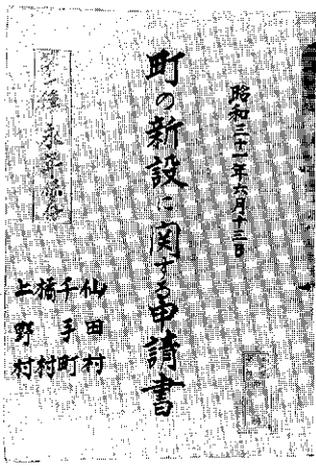 昭和三十一年六月十三日
町の新設に関する申請書
第一種 永年保存
仙田村
千手町
橘村
上野村